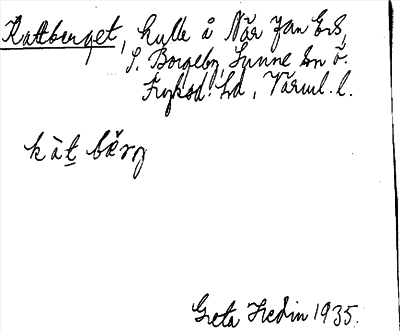 Kattberget, kulle å När Jan Ers,
S. Borgeby, Sunne sn Ö.
Fryksd. hd, Värml. l.
kàt bærg
Greta Hedin 1935.